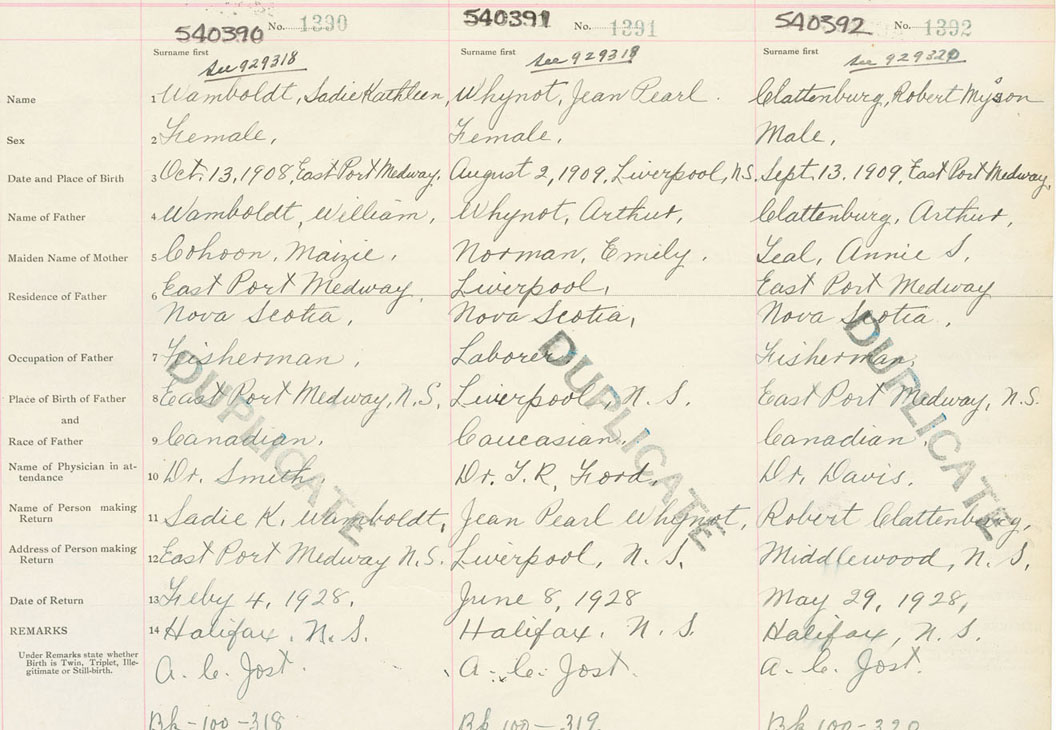 540390 No. 1390 540391 No. 1391 540392 No. 1392
Surname first Surname first Surname first
See 929318 See 929319 See 929320
Name 1 Wamboldt, Sadie Kathleen, Whynot, Jean Pearl. Clattenburg, Robert Myson
Sex 2 Female, Female, Male,
Date and Place of Birth 3 Oct. 13, 1908, East Port Medway. August 2, 1909, Liverpool, N.S. Sept. 13. 1909, East Port Medway,
Name of Father 4 Wamboldt, William, Whynot, Arthur, Clattenburg, Arthur,
Maiden Name of Mother 5 Cohoon, Maizie, Norman, Emily. Teal, Annie S,
Residence of Father 6 East Port Medway, Liverpool, East Port Medway
Nova Scotia, Nova Scotia, Nova Scotia,
Occupation of Father 7 Fisherman, Laborer Fisherman
Place of Birth of Father 8 East Port Medway, N.S, Liverpool, N. S. East Port Medway, N.S.
and
Race of Father 9 Canadian, Caucasian, Canadian,
Name of Physician in at-
tendance 10 Dr. Smith, Dr. T. R. Ford, Dr. Davis.
Name of Person making
Return 11 Sadie K. Wamboldt, Jean Pearl Whynot, Robert Clattenburg,
Address of Person making
Return 12 East Port Medway N.S. Liverpool, N. S, Middlewood, N. S,
Date of Return 13 Feby 4, 1928. June 8, 1928 May 29, 1928,
REMARKS 14 Halifax. N. S. Halifax. N. S. Halifax, N. S.
Under Remarks state whether
Birth is Twin, Triplet, Ille-
gitimate or Still-birth.
A. C. Jost. A. C. Jost. A. C. Jost.
Bk-100-318 Bk 100-319 Bk 100-320
DUPLICATE DUPLICATE DUPLICATE